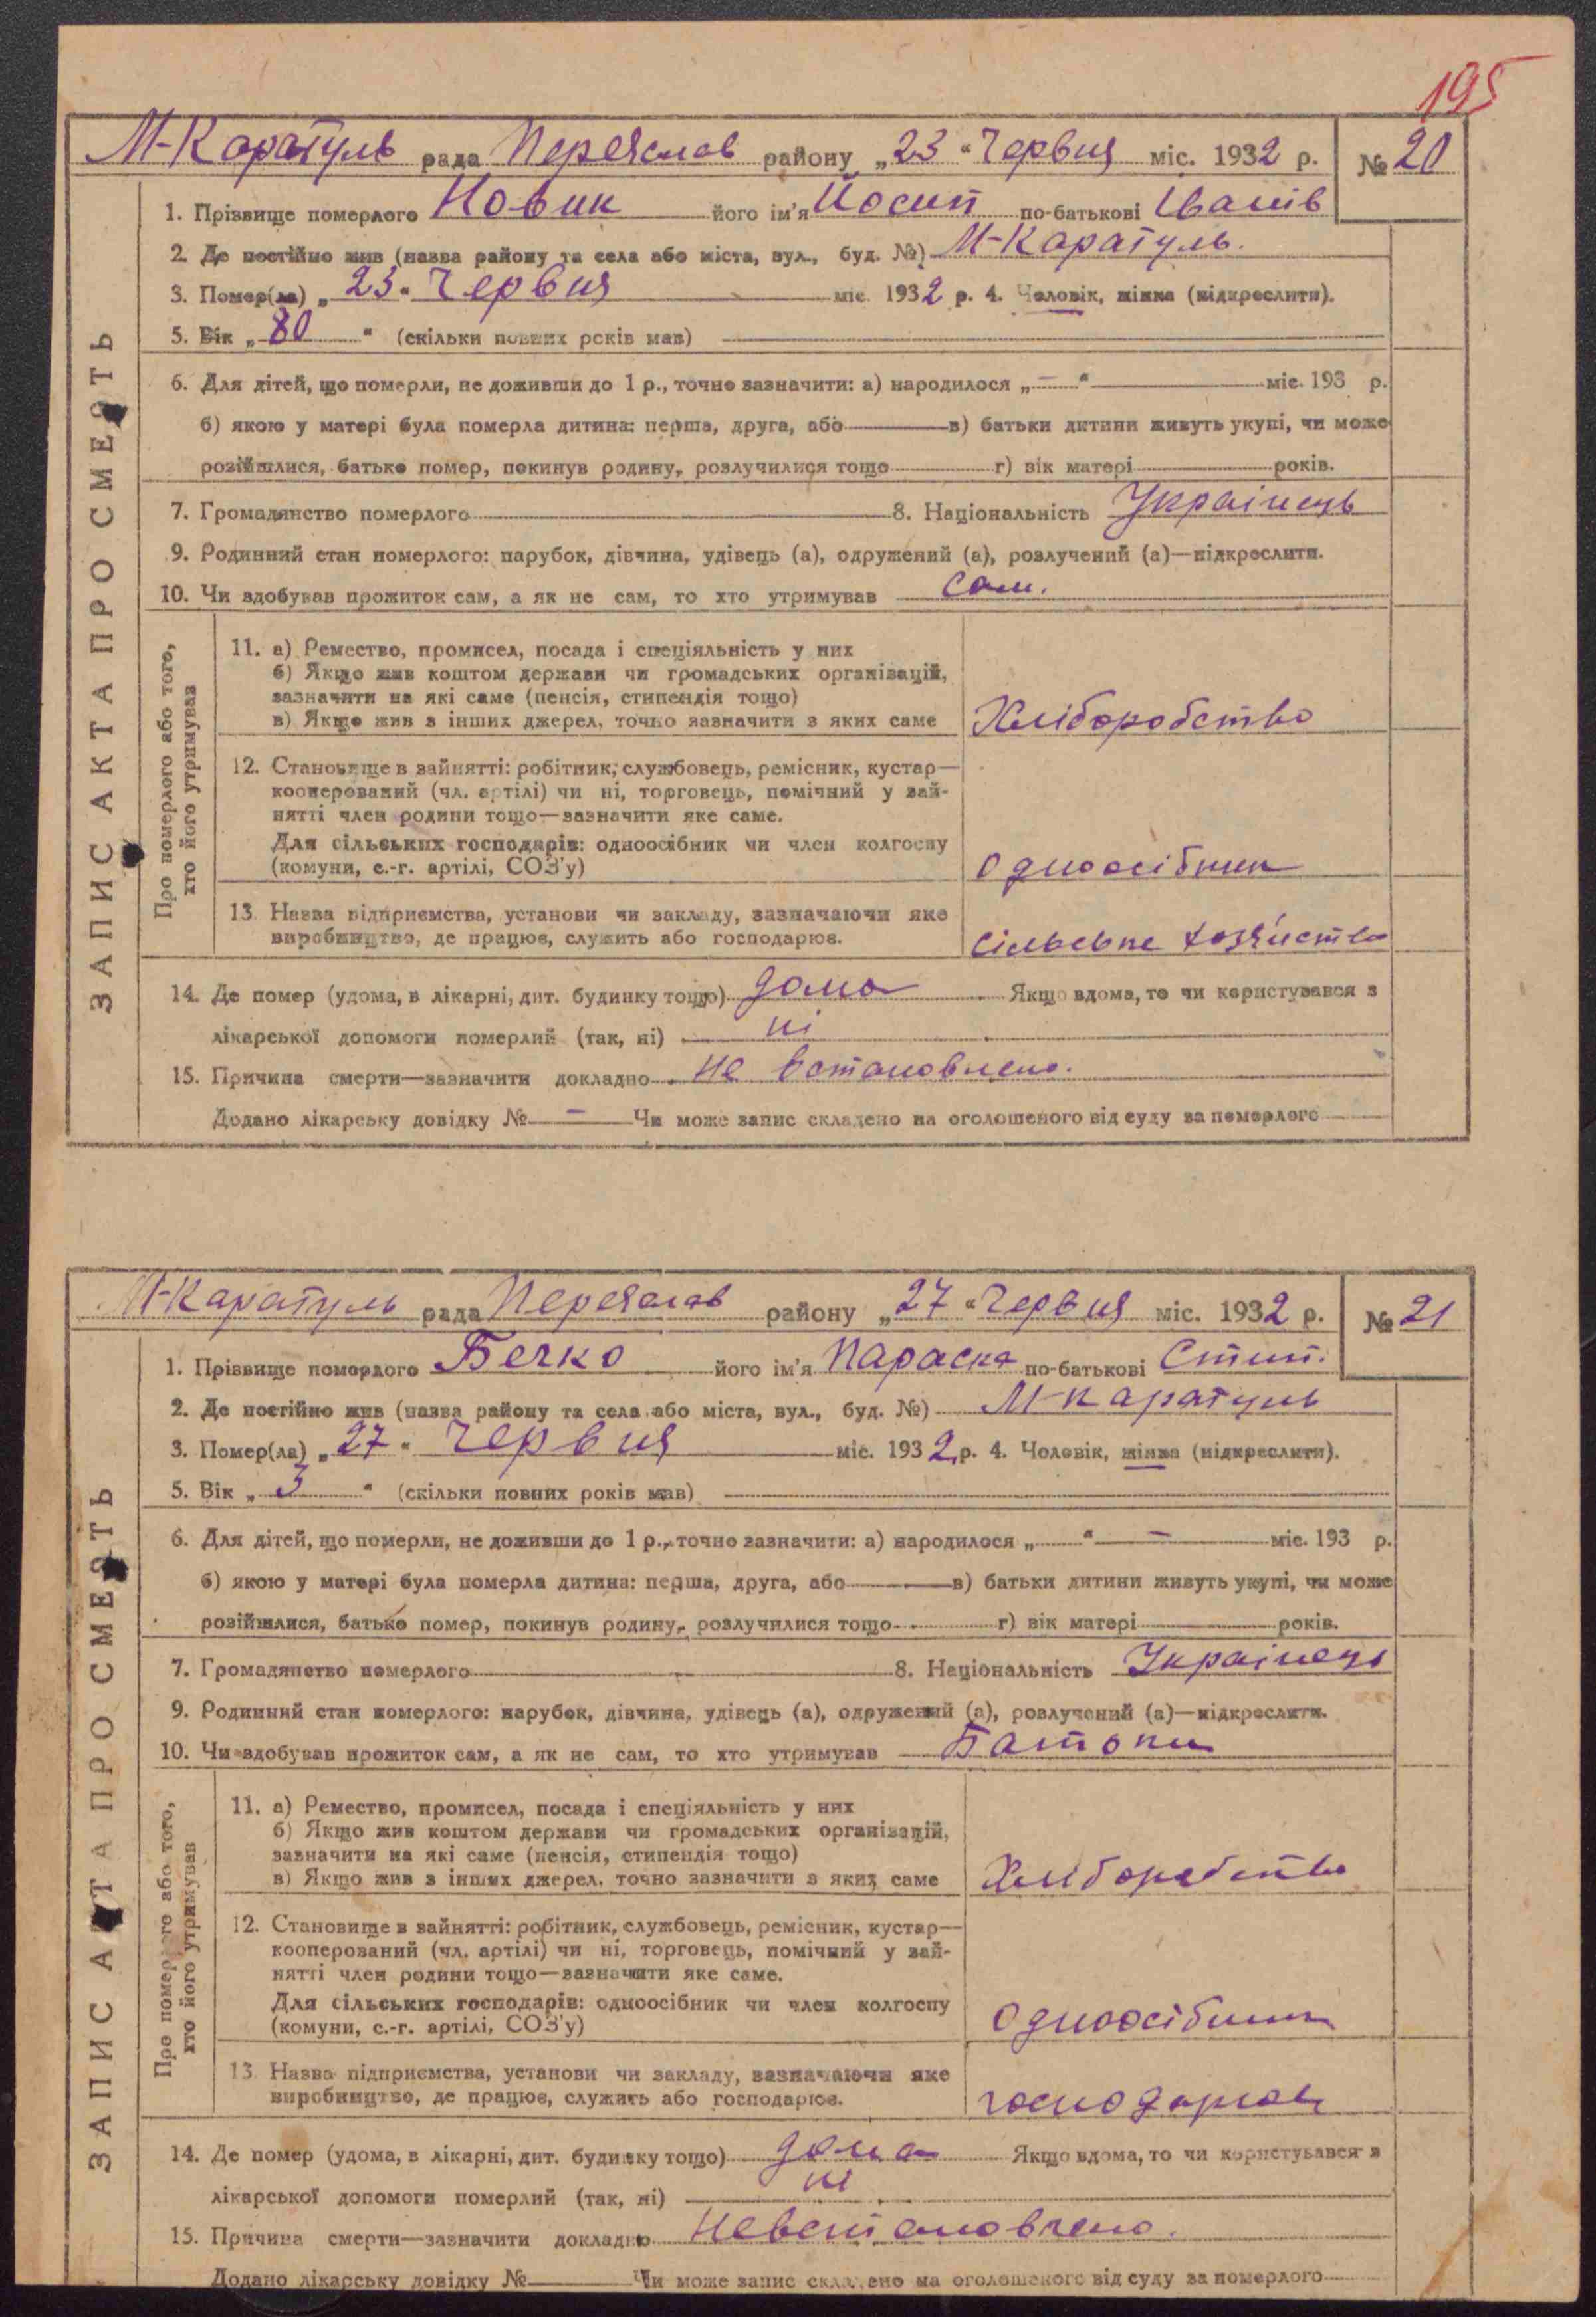 195
М-Каратуль рада Переяслав району „23“ Червня міс. 1932 р. № 20
1. Прізвище померлого Новик його ім'я Йосип по-батькові Іванів
2. Де постійно жив (назва району та села або міста, вул., буд. №) М-Каратуль.
3. Помер(ла) „23“ Червня міс. 1932 р. 4. Чоловік, жінка (підкреслити).
5. Вік „80“ (скільки повних років мав)
6. Для дітей, що померли, не доживши до 1 р., точно зазначити: а) народилося „—“ міс. 193 р.
б) якою у матері була померла дитина: перша, друга, або в) батьки дитини живуть укупі, чи може
розійшлися, батько помер, покинув родину, розлучилися тощо г) вік матері років.
7. Громадянство померлого 8. Національність Українець
9. Родинний стан померлого: парубок, дівчина, удівець (а), одружений (а), розлучений (а)—підкреслити.
10. Чи здобував прожиток сам, а як не сам, то хто утримував сам.
ЗАПИС АКТА ПРО СМЕРТЬ
Про померлого або того,
хто його утримував
11. а) Ремество, промисел, посада і спеціяльність у них
б) Якщо жив коштом держави чи громадських організацій,
зазначити на які саме (пенсія, стипендія тощо)
в) Якщо жив з інших джерел, точно зазначити з яких саме Хліборобство
12. Становище в зайнятті: робітник, службовець, ремісник, кустар—
кооперований (чл. артілі) чи ні, торговець, помічний у зай-
нятті член родини тощо—зазначити яке саме.
Для сільських господарів: одноосібник чи член колгоспу
(комуни, с.-г. артілі, СОЗ'у) одноосібник
13. Назва підприємства, установи чи закладу, зазначаючи яке
виробництво, де працює, служить або господарює. сільське
14. Де помер (удома, в лікарні, дит. будинку тощо) дома Якщо вдома, то чи користувався з
лікарської допомоги померлий (так, ні) ні
15. Причина смерти—зазначити докладно не встановлено.
Додано лікарську довідку № — Чи може запис складено на оголошеного від суду за померлого
М-Каратуль рада Переяслав району „27“ Червня міс. 1932 р. № 21
1. Прізвище померлого Бечко його ім'я Параска по-батькові
2. Де постійно жив (назва району та села або міста, вул., буд. №) М-Каратуль
3. Помер(ла) „27“ Червня міс. 1932 р. 4. Чоловік, жінка (підкреслити).
5. Вік „3“ (скільки повних років мав)
6. Для дітей, що померли, не доживши до 1 р., точно зазначити: а) народилося „ “ — міс. 193 р.
б) якою у матері була померла дитина: перша, друга, або в) батьки дитини живуть укупі, чи може
розійшлися, батько помер, покинув родину, розлучилися тощо г) вік матері років.
7. Громадянство померлого 8. Національність Українець
9. Родинний стан померлого: парубок, дівчина, удівець (а), одружений (а), розлучений (а)—підкреслити.
10. Чи здобував прожиток сам, а як не сам, то хто утримував Батьки
ЗАПИС АКТА ПРО СМЕРТЬ
Про померлого або того,
хто його утримував
11. а) Ремество, промисел, посада і спеціяльність у них
б) Якщо жив коштом держави чи громадських організацій,
зазначити на які саме (пенсія, стипендія тощо)
в) Якщо жив з інших джерел, точно зазначити з яких саме Хліборобство
12. Становище в зайнятті: робітник, службовець, ремісник, кустар—
кооперований (чл. артілі) чи ні, торговець, помічний у зай-
нятті член родини тощо—зазначити яке саме.
Для сільських господарів: одноосібник чи член колгоспу
(комуни, с.-г. артілі, СОЗ'у) одноосібник
13. Назва підприємства, установи чи закладу, зазначаючи яке
виробництво, де працює, служить або господарює.
14. Де помер (удома, в лікарні, дит. будинку тощо) дома Якщо вдома, то чи користувався з
лікарської допомоги померлий (так, ні) ні
15. Причина смерти—зазначити докладно Невстановлено.
Додано лікарську довідку № Чи може запис складено на оголошеного від суду за померлого